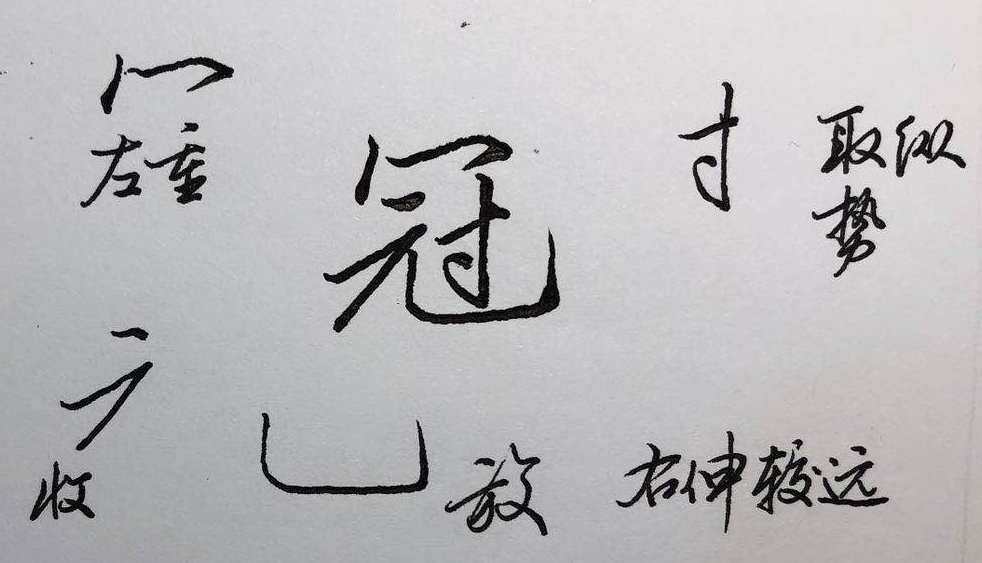 冖
左重
冠
寸
取纵
势
收
乚
放
右伸较远